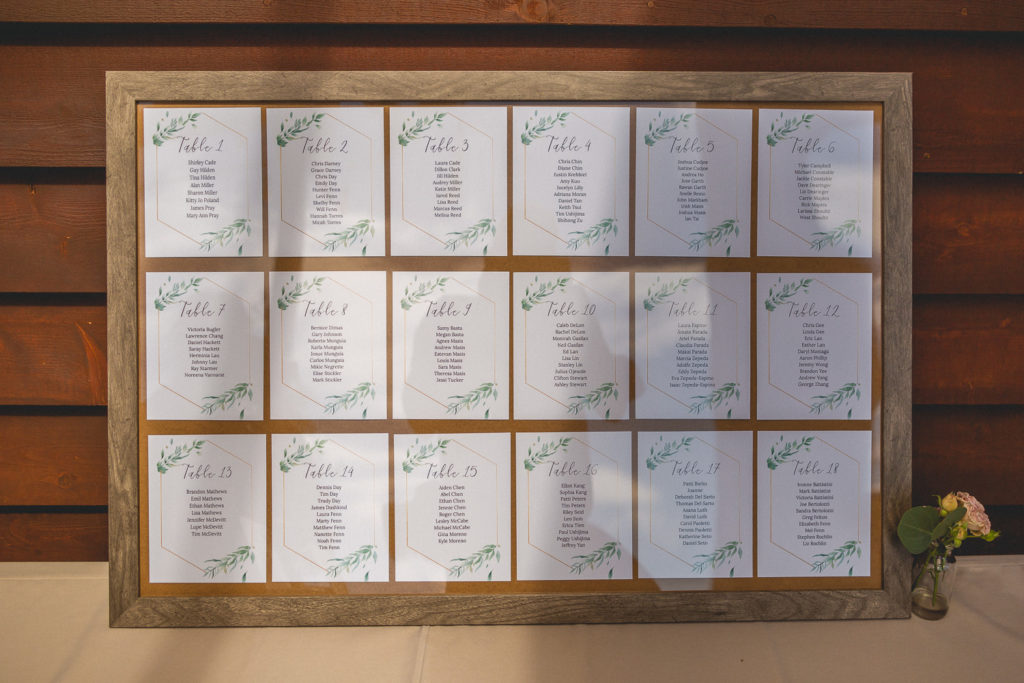 Table 1
Shirley Cade
Guy Hilden
Tina Hilden
Alan Miller
Sharon Miller
Kitty Jo Poland
James Pray
Mary Ann Pray
Table 2
Chris Darney
Grace Darney
Chris Day
Emily Day
Hunter Fenn
Levi Fenn
Shelby Fenn
Will Fenn
Hannah Torres
Micah Torres
Table 3
Laura Cade
Dillon Clark
Jill Hilden
Audrey Miller
Katie Miller
Jarod Reed
Lisa Reed
Marcus Reed
Melisa Reed
Table 4
Chris Chin
Diane Chin
Justin Krehbiel
Amy Kuo
Jocelyn Lilly
Adriana Moran
Daniel Tan
Keith Tsui
Tim Ushijima
Shihong Zu
Table 5
Joshua Cudjoe
Justine Cudjoe
Andrea Ho
Jose Garth
Raeun Garth
Joelle Penno
John Markham
Utah Mann
Joshua Mann
Ian Tai
Table 6
Tyler Campbell
Michael Constable
Jackie Constable
Dave Dearinger
Liz Dearinger
Carrie Majdra
Rick Majdra
Larissa Shoultz
West Shoultz
Table 7
Victoria Bugler
Lawrence Chang
Daniel Hackett
Saray Hackett
Herminia Lau
Johnny Lau
Ray Starmer
Noreena Vairnarut
Table 8
Bernice Dimas
Gary Johnson
Roberto Munguia
Karla Munguia
Jonus Munguia
Carlos Munguia
Mikie Negrette
Elise Stickler
Mark Stickler
Table 9
Samy Basta
Megan Basta
Agney Masis
Andrew Masis
Estevan Masis
Louis Masis
Sara Masis
Theresa Masis
Jessi Tucker
Table 10
Caleb DeLon
Rachel DeLon
Monirah Gasilan
Neil Gasilan
Ed Lan
Lisa Lin
Stanley Lin
Julius Ojwode
Clifton Stewart
Ashley Stewart
Table 11
Laura Espino
Amado Parada
Ariel Parada
Claudia Parada
Makai Parada
Marcia Zepeda
Adolfo Zepeda
Eddy Zepeda
Eva Zepeda-Espino
Isaac Zepeda-Espino
Table 12
Chris Dea
Linda Dea
Eric Lau
Esther Lau
Daryl Masiaga
Aaron Phillip
Jeremy Wong
Brandon Yee
Andrew Yong
George Zhang
Table 13
Brandon Mathews
Emil Mathews
Ethan Mathews
Lisa Mathews
Jennifer McDevitt
Lupe McDevitt
Tim McDevitt
Table 14
Dennis Day
Tim Day
Trudy Day
James Dashkind
Laura Fenn
Marty Fenn
Matthew Fenn
Nanette Fenn
Noah Fenn
Tim Fenn
Table 15
Aiden Chen
Abel Chen
Ethan Chen
Jenene Chen
Roger Chen
Lesley McCabe
Michael McCabe
Gina Moreno
Kyle Moreno
Table 16
Elliot Kang
Sophia Kang
Patti Peters
Tim Peters
Riley Reid
Leo Sun
Erica Tien
Paul Ushijima
Peggy Ushijima
Jeffrey Yan
Table 17
Patti Burns
Joanne
Deborah Del Sarto
Thomas Del Sarto
Asana Luth
David Luth
Carol Paoletti
Dennis Paoletti
Katherine Seto
Daniel Seto
Table 18
Ivonne Battaini
Mark Battaini
Victoria Battaini
Joe Bertolozzi
Sandra Bertolozzi
Greg Felton
Elizabeth Fenn
Mel Fenn
Stephen Rochlin
Liz Rochlin